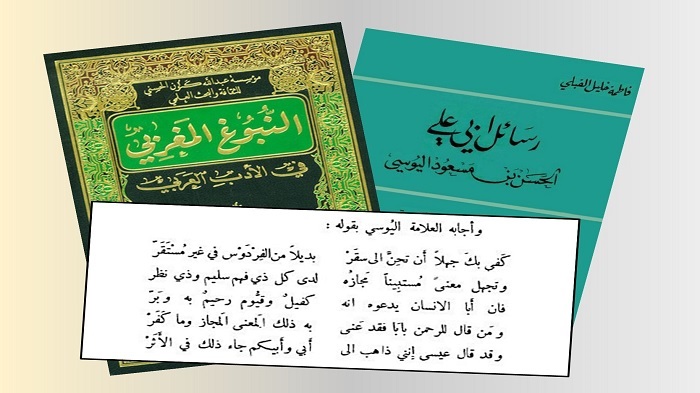 مؤسسة عبدالله كنون الحسني
للثقافة والبحث العلمي
النبوغ المغربي
في الأدب العربي
فاطمة خليل القبلي
رسائل أبي علي
الحسن بن مسعود اليوسي
وأجابه العلامة اليُوسي بقوله :
كَفى بكَ جهلاً أن تحِنَّ الى سقَرْ بديلاً من الفِرْدَوْس في غير مُسْتَقَرّ
وتجهل معنىً مُستبِيناً مَجازُه لدى كل ذي فهم سليم وذي نظر
فان أبا الانسان يدعوه انه كفيلٌ وقَيُّوم رحيمٌ به وَبَرّ
ومَن قال للرحمن بابَا فقد عَنى به ذلك المعنى المجاز وما كَفَرْ
وقد قال عيسى إنني ذاهب الى أبي وأبيكم جاء ذلك في الأَثَرْ